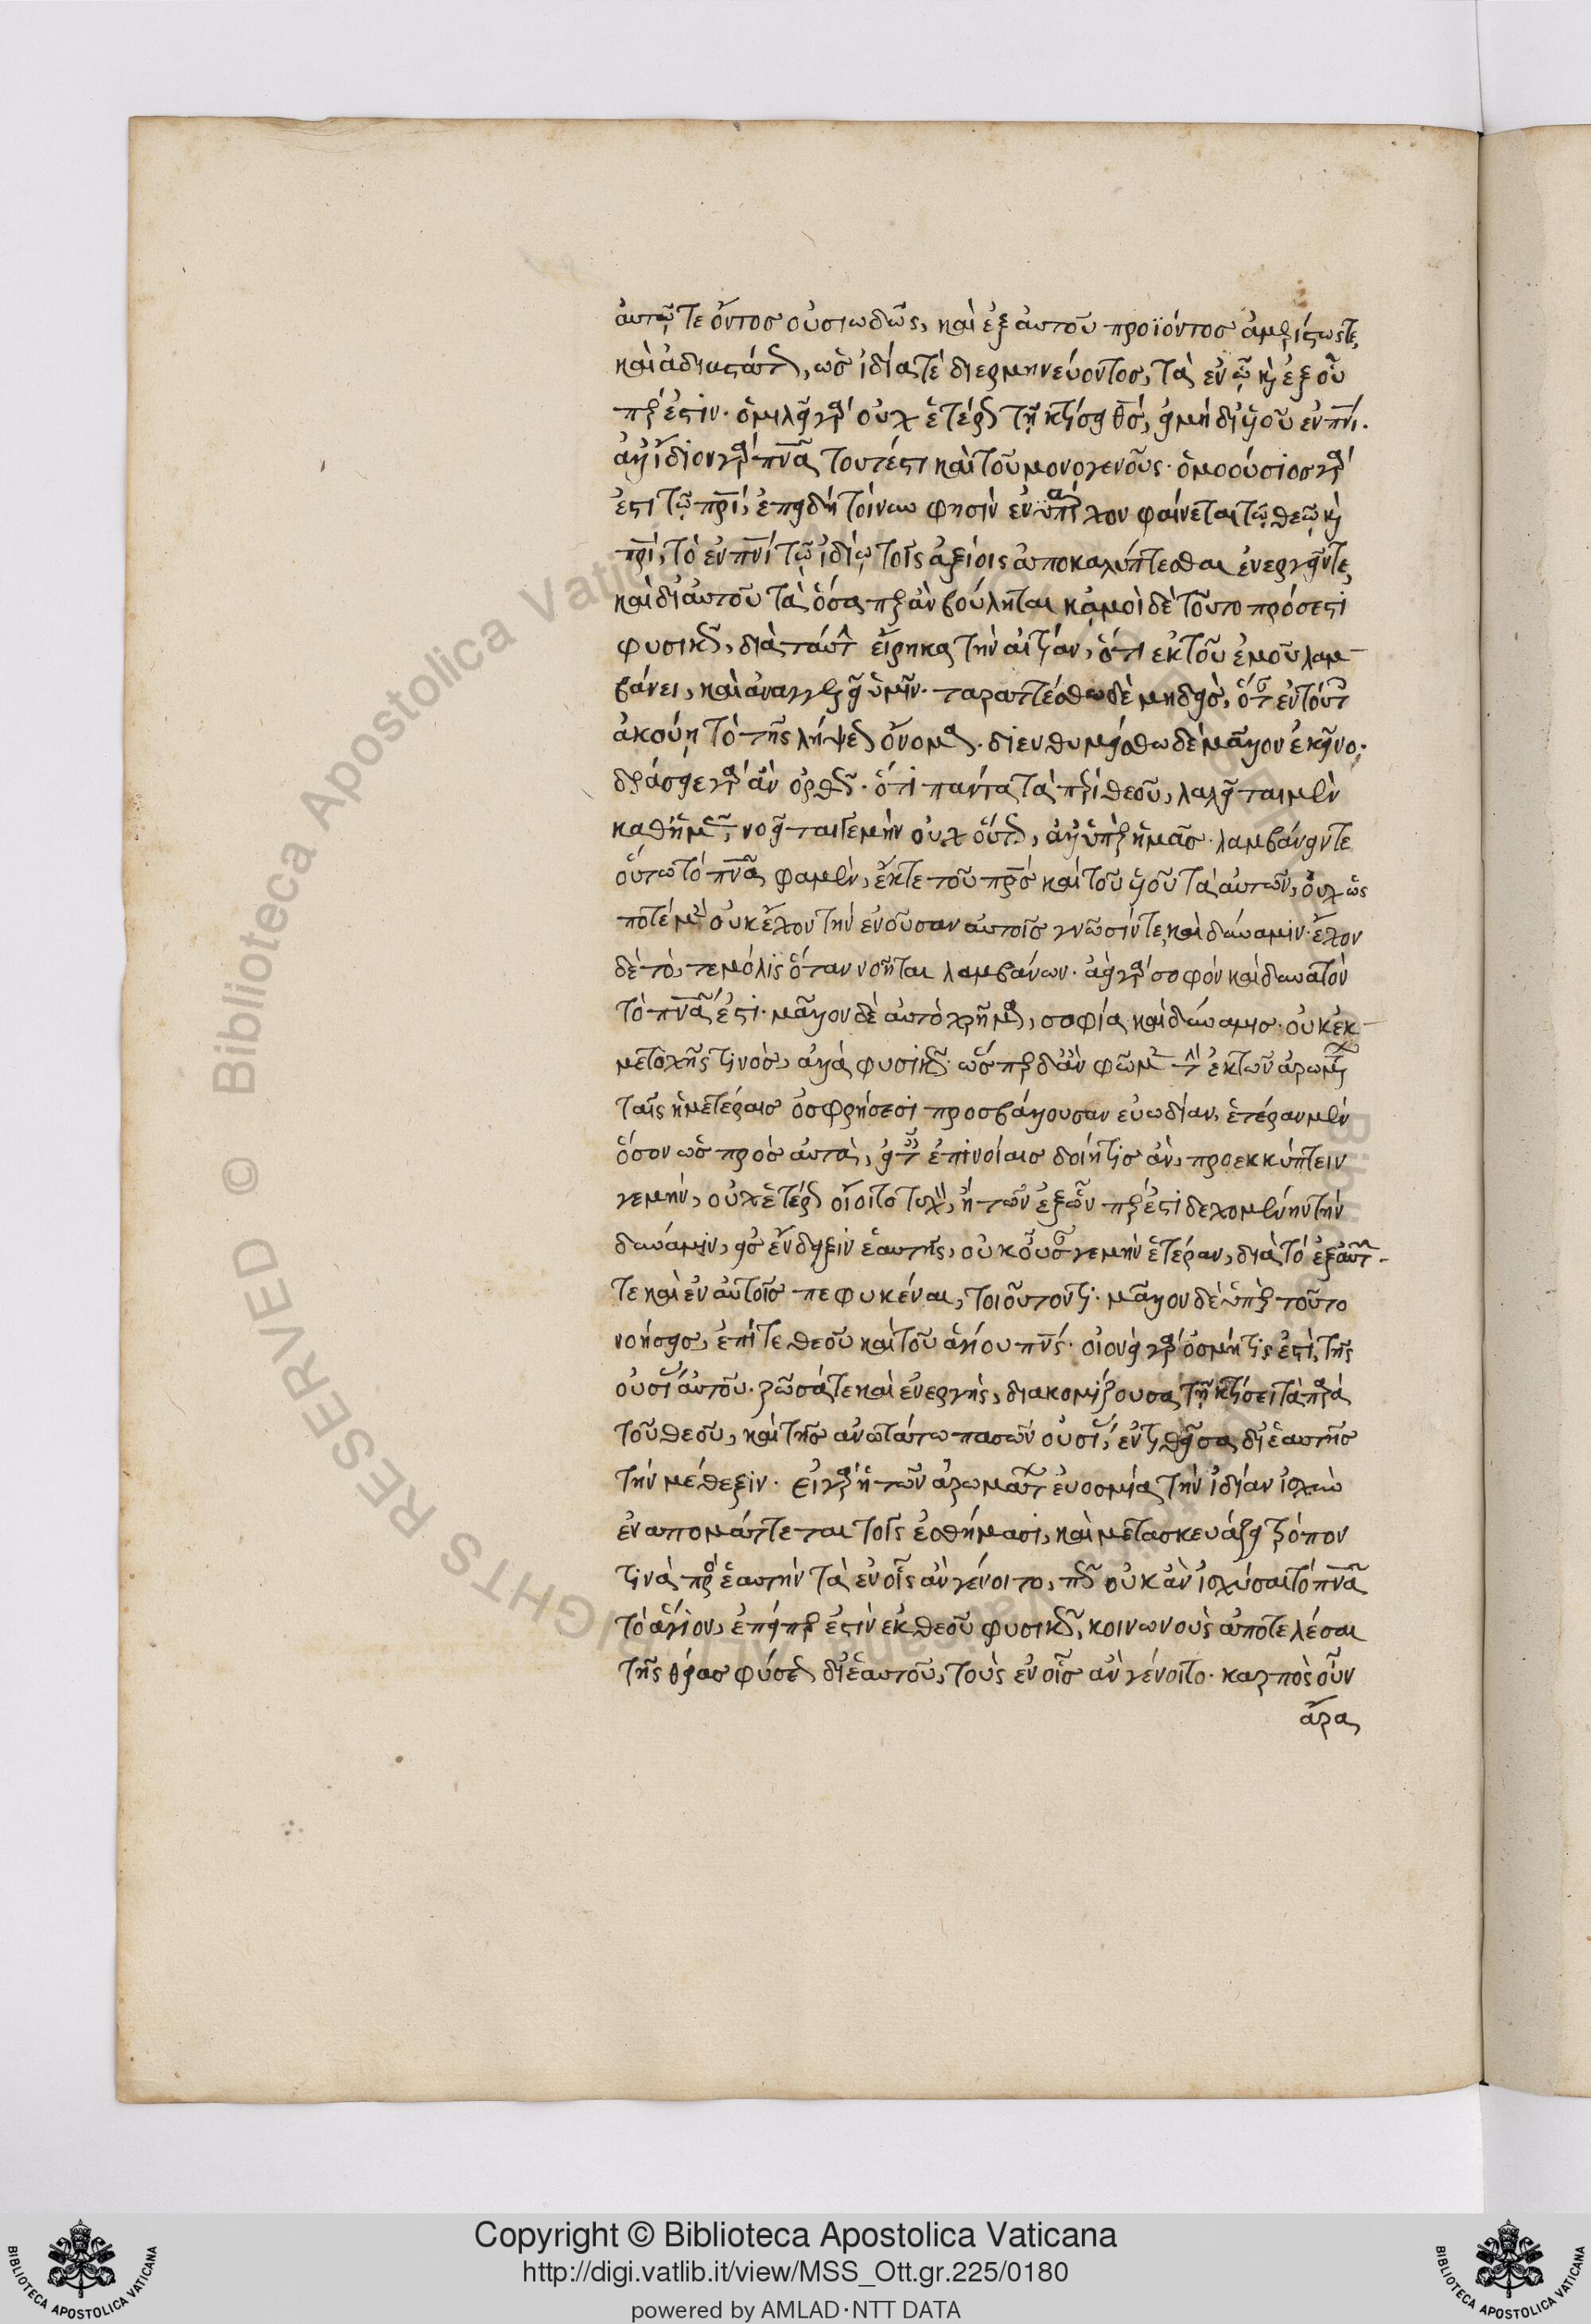 αὐτῷ τε ὄντος οὐσιωδῶς, καὶ ἐξ αὐτοῦ προϊόντος ἀμερίστως τε,
καὶ ἀδιαστάτως, ὡς ἰδίᾳ τὲ διερμηνεύοντος, τὰ ἐν ᾧ καὶ ἐξ οὗ
πέρ ἐστιν. ὁμιλεῖ γὰρ οὐχ ἑτέρως τῇ κτίσει θς, εἰ μὴ δι' υἱοῦ ἐν πνι.
ἀλλ' ἴδιον γὰρ πνα τουτέστι καὶ τοῦ μονογενοῦς. ὁμοούσιος γάρ
ἐστι τῷ πρι, ἐπειδὴ τοίνυν φησὶν ἐνυπάρχον φαίνεται τῷ θεῷ καὶ
πρι, τὸ ἐν πνι τῷ ἰδίῳ τοῖς ἀξίοις ἀποκαλύπτεσθαι ἐνεργεῖν τε,
καὶ δι' αὐτοῦ τὰ ὅσα περ ἂν βούληται κἀμοὶ δὲ τοῦτο πρόσεστι
φυσικῶς, διὰ ταύτην εἴρηκα τὴν αἰτίαν, ὅτι ἐκ τοῦ ἐμοῦ λαμ-
βάνει, καὶ ἀναγγελεῖ ὑμῖν. ταραττέσθω δὲ μηδεὶς, ὅταν ἐν τούτοις
ἀκούῃ τὸ τῆς λήψεως ὄνομα. διενθυμείσθω δὲ μᾶλλον ἐκεῖνο.
δράσειε γὰρ ἂν ὀρθῶς. ὅτι πάντα τὰ περὶ θεοῦ, λαλεῖται μὲν
καθ' ἡμᾶς, νοεῖται γε μὴν οὐχ οὕτως, ἀλλ' ὑπὲρ ἡμᾶς. λαμβάνειν τε
οὕτω τὸ πνα φαμὲν, ἔκ τε τοῦ πρς καὶ τοῦ υἱοῦ τὰ αὐτῶν, οὐχ ὥς
ποτὲ μὲν οὐκ ἔχον τὴν ἐνοῦσαν αὐτοῖς γνῶσίν τε, καὶ δύναμιν. ἔχον
δὲ τό, τε μόλις ὅταν νοῆται λαμβάνων. ἀεὶ γὰρ σοφὸν καὶ δυνατὸν
τὸ πνα ἐστι. μᾶλλον δὲ αὐτόχρημα, σοφία καὶ δύναμις. οὐκ ἐκ
μετοχῆς τινὸς, ἀλλὰ φυσικῶς. ὥσπερ δ' ἂν φῶμεν τὴν ἐκ τῶν ἀρωμάτων
ταῖς ἡμετέραις ὀσφρήσεσι προσβάλλουσαν εὐωδίαν, ἑτέραν μὲν
ὅσον ὡς πρὸς αὐτὰ, εἰ ταῖς ἐπινοίαις δοίη τις ἂν, προεκκύπτειν
γε μὴν, οὐχ ἑτέρως οἴοιτο τυχὸν, ἢ τῶν ἐξ ὧν πέρ ἐστι δεχομένην τὴν
δύναμιν, εἰς ἔνδειξιν ἑαυτῆς, οὐκ οὖσαν γε μὴν ἑτέραν, διὰ τὸ ἐξ αὐτῶν
τε καὶ ἐν αὐτοῖς πεφυκέναι, τοιοῦτόν τι. μᾶλλον δὲ ὑπὲρ τοῦτο
νοήσεις, ἐπί τε θεοῦ καὶ τοῦ ἁγίου πνς. οἱονεὶ γὰρ ὀσμή τις ἐστὶ, τῆς
οὐσίας αὐτοῦ. ζῶσά τε καὶ ἐνεργὴς, διακομίζουσα τῇ κτίσει τὰ παρὰ
τοῦ θεοῦ, καὶ τῆς ἀνωτάτω πασῶν οὐσίας, ἐντιθεῖσα δι' ἑαυτῆς
τὴν μέθεξιν. εἰ γὰρ ἡ τῶν ἀρωμάτων εὐοσμία τὴν ἰδίαν ἰσχὺν
ἐναπομάττεται τοῖς ἐσθήμασι, καὶ μετασκευάζει τρόπον
τινὰ πρὸς ἑαυτὴν τὰ ἐν οἷς ἂν γένοιτο, πῶς οὐκ ἂν ἰσχύσαι τὸ πνα
τὸ ἅγιον, ἐπείπερ ἐστὶν ἐκ θεοῦ φυσικῶς, κοινωνοὺς ἀποτελέσαι
τῆς θείας φύσεως δι' ἑαυτοῦ, τοὺς ἐν οἷς ἂν γένοιτο. καρπὸς οὖν
ἄρα
Copyright © Biblioteca Apostolica Vaticana
http://digi.vatlib.it/view/MSS_Ott.gr.225/0180
powered by AMLAD·NTT DATA